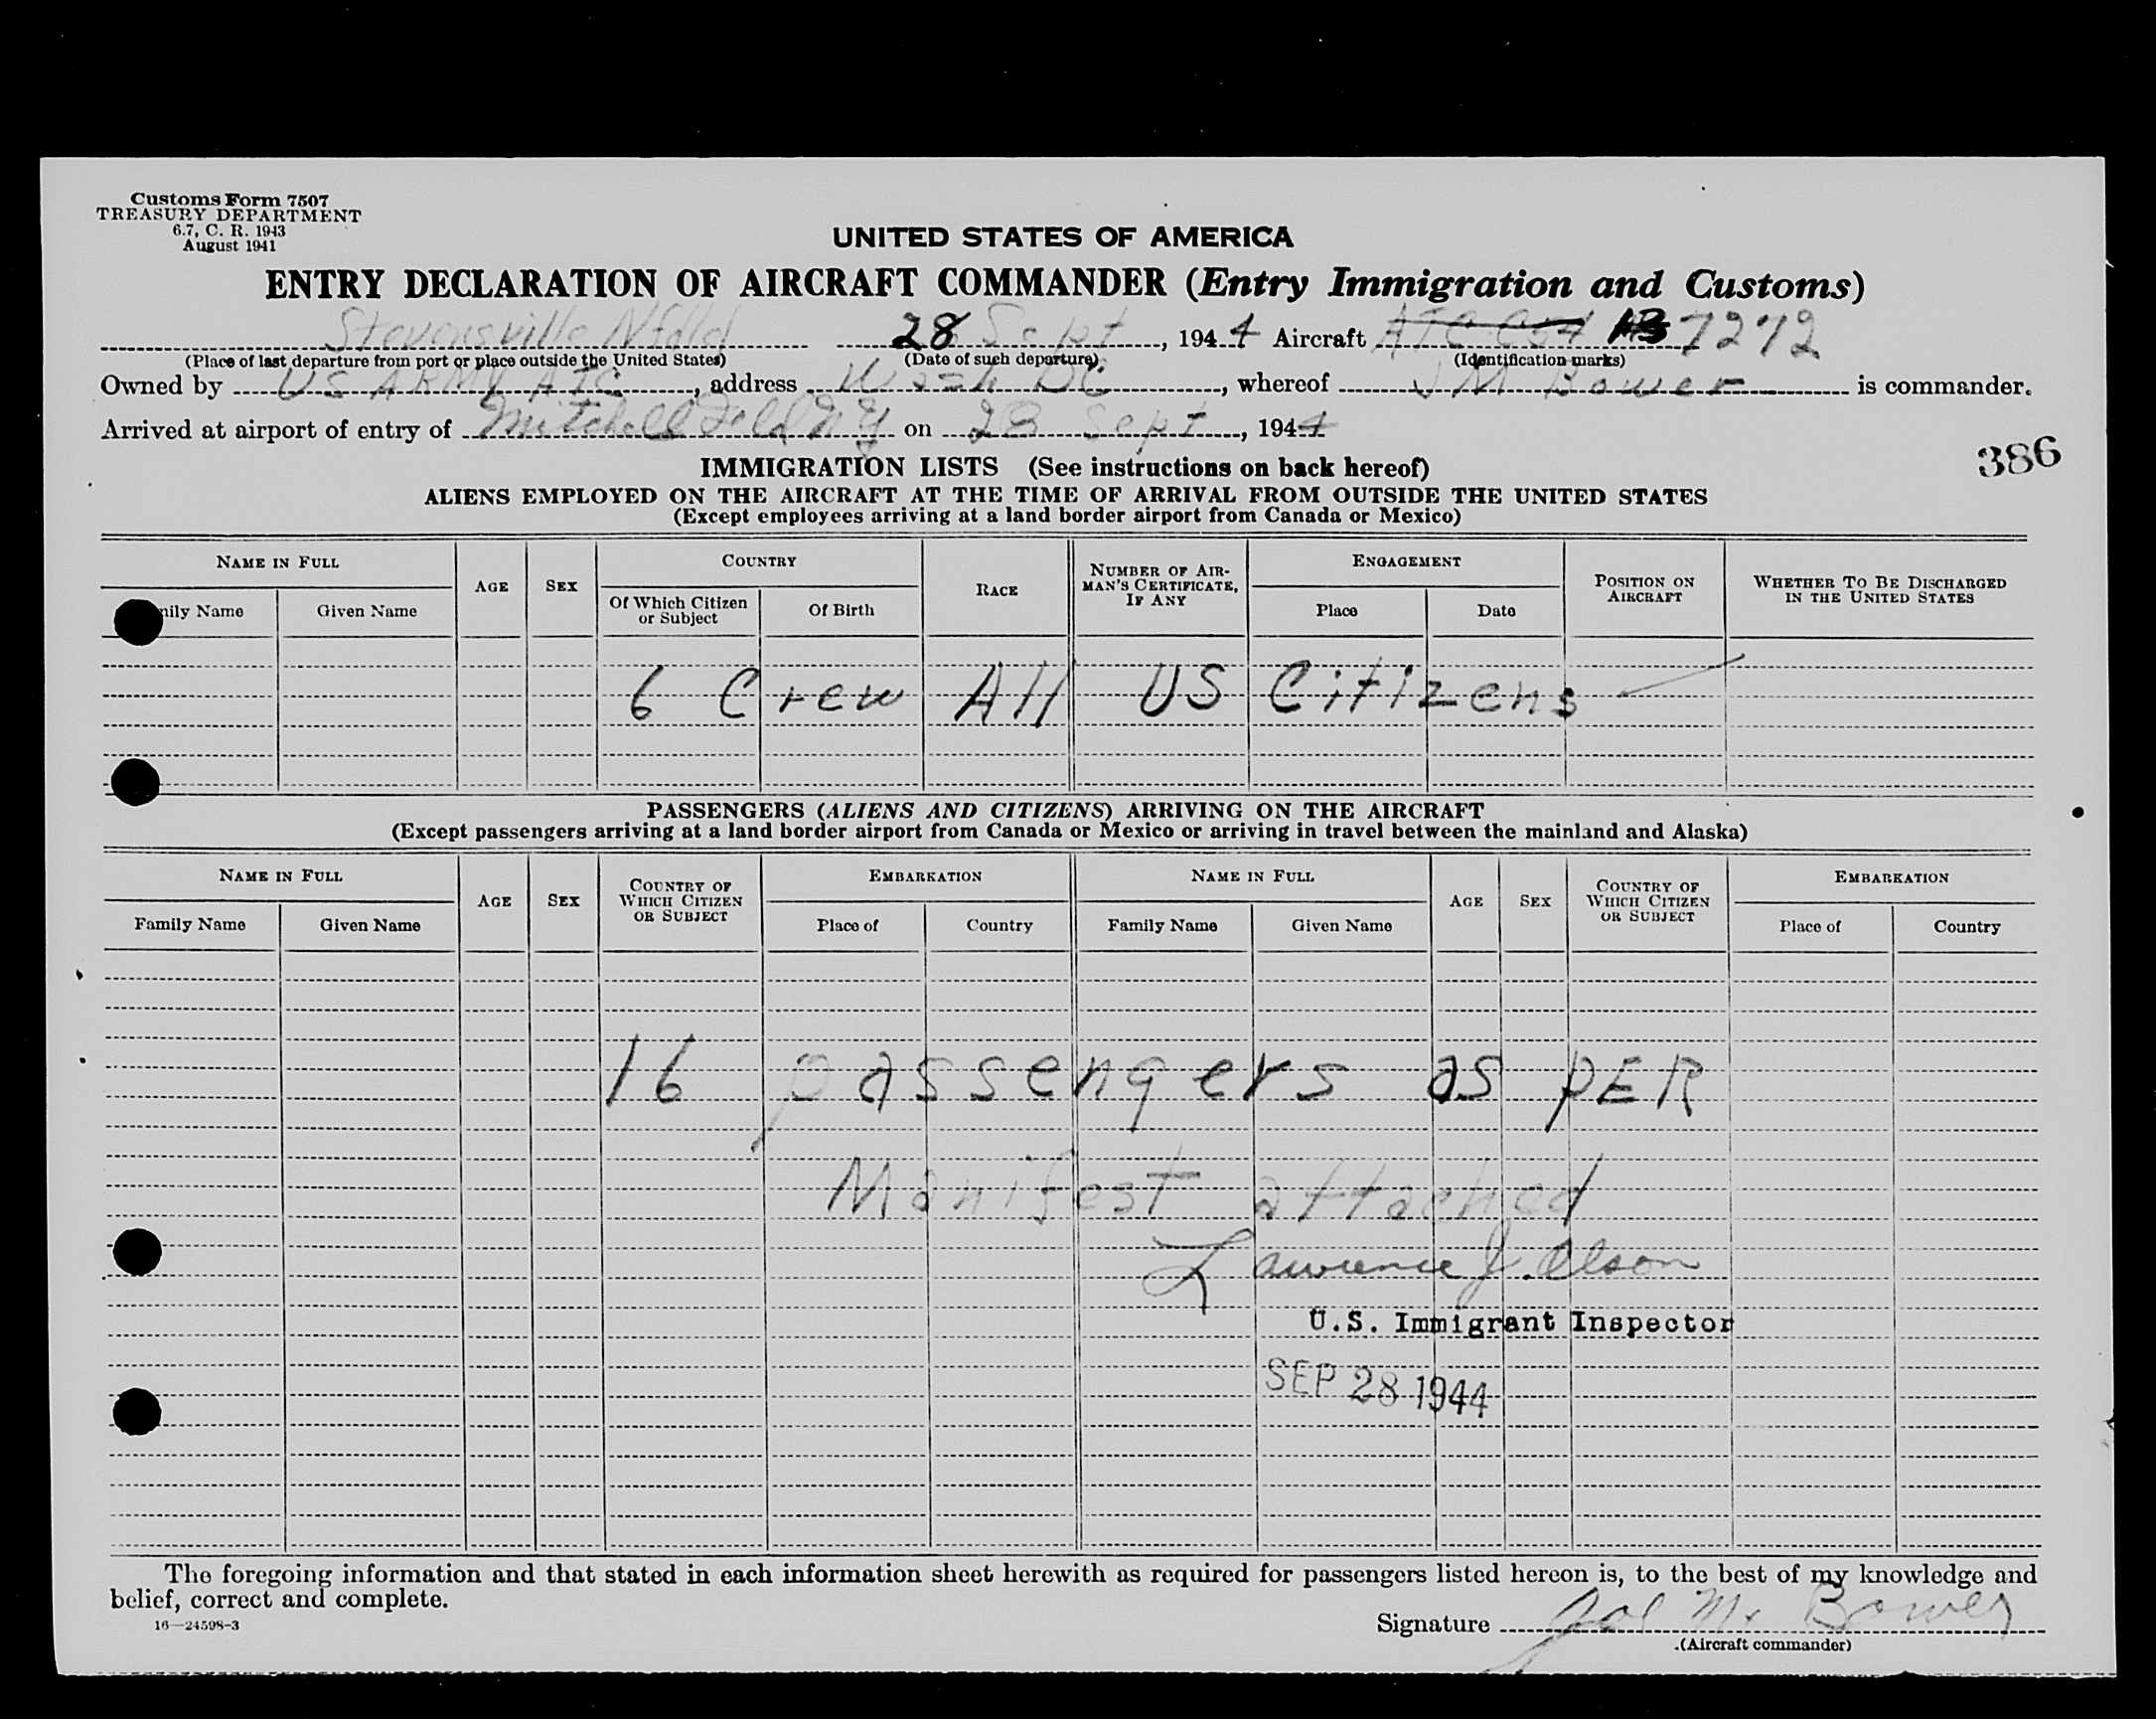 Customs Form 7507
TREASURY DEPARTMENT
6.7, C. R. 1943
August 1941
UNITED STATES OF AMERICA
ENTRY DECLARATION OF AIRCRAFT COMMANDER (Entry Immigration and Customs)
Stevensville Nfdld 28 Sept, 194 4 Aircraft ATC C54 7272
(Place of last departure from port or place outside the United States) (Date of such departure) (Identification marks)
Owned by US ARMY ATC, address Wash DC, whereof J M Bower is commander.
Arrived at airport of entry of Mitchell Field NY on 28 Sept, 194 4
386
IMMIGRATION LISTS (See instructions on back hereof)
ALIENS EMPLOYED ON THE AIRCRAFT AT THE TIME OF ARRIVAL FROM OUTSIDE THE UNITED STATES
(Except employees arriving at a land border airport from Canada or Mexico)
NAME IN FULL AGE SEX COUNTRY RACE NUMBER OF AIRMAN'S CERTIFICATE, IF ANY ENGAGEMENT POSITION ON AIRCRAFT WHETHER TO BE DISCHARGED IN THE UNITED STATES
ily Name Given Name Of Which Citizen or Subject Of Birth Place Date
6 Crew All US Citizens
PASSENGERS (ALIENS AND CITIZENS) ARRIVING ON THE AIRCRAFT
(Except passengers arriving at a land border airport from Canada or Mexico or arriving in travel between the mainland and Alaska)
NAME IN FULL AGE SEX COUNTRY OF WHICH CITIZEN OR SUBJECT EMBARKATION NAME IN FULL AGE SEX COUNTRY OF WHICH CITIZEN OR SUBJECT EMBARKATION
Family Name Given Name Place of Country Family Name Given Name Place of Country
16 passengers as pER
Manifest attached
Lawrence J. Olson
U.S. Immigrant Inspector
SEP 28 1944
The foregoing information and that stated in each information sheet herewith as required for passengers listed hereon is, to the best of my knowledge and
belief, correct and complete.
16—24598-3
Signature Joe M. Bower
(Aircraft commander)